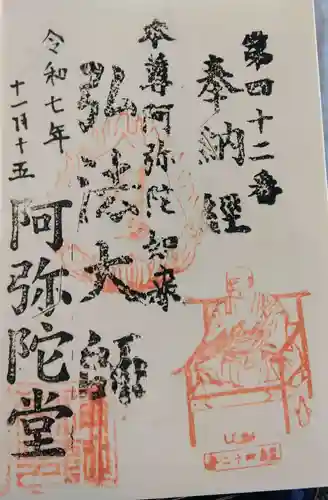 第四十二番
奉納經
本尊阿弥陀如来
弘法大師
阿弥陀堂
令和七年
十一月十五
第四十二番